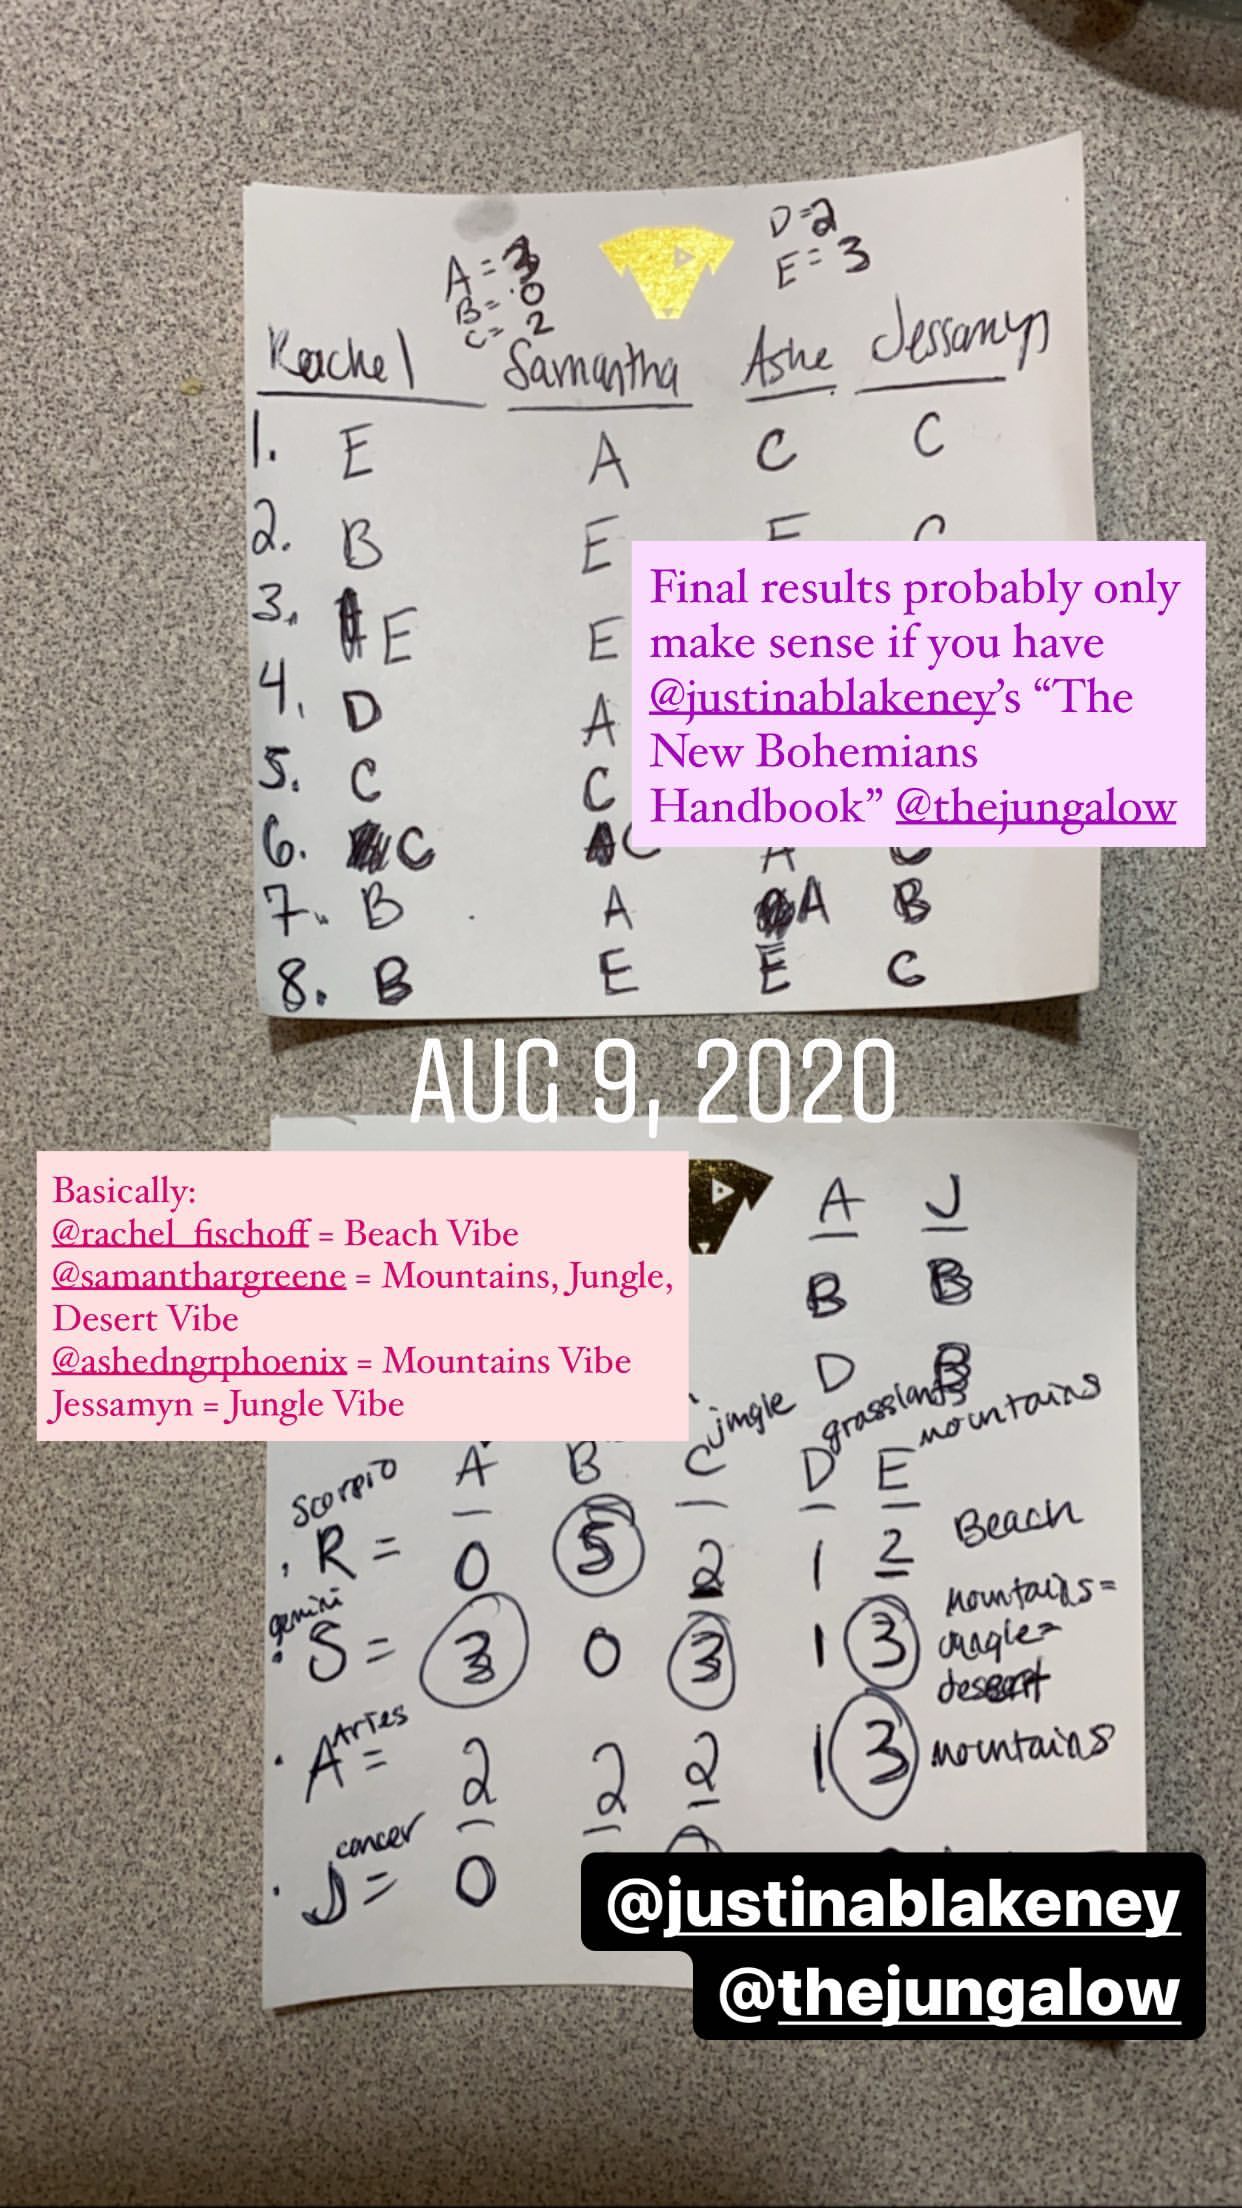 A = 3
B = 0
C = 2
D = 2
E = 3
Rachel Samantha Ashe Jessamyn
1. E A C C
2. B E E C
3. E E
4. D A
5. C C
6. C A C A C
7. B A A B
8. B E E C
Final results probably only
make sense if you have
@justinablakeney’s “The
New Bohemians
Handbook” @thejungalow
AUG 9, 2020
Basically:
@rachel_fischoff = Beach Vibe
@samanthargreene = Mountains, Jungle,
Desert Vibe
@ashedngrphoenix = Mountains Vibe
Jessamyn = Jungle Vibe
A J
B B
D B
jungle grasslants mountains
A B C D E
Scorpio
R = 0 5 2 1 2 Beach
gemini
S = 3 0 3 1 3 Mountains = jungle = desert
Aries
A = 2 2 2 1 3 mountains
cancer
J = 0
@justinablakeney
@thejungalow